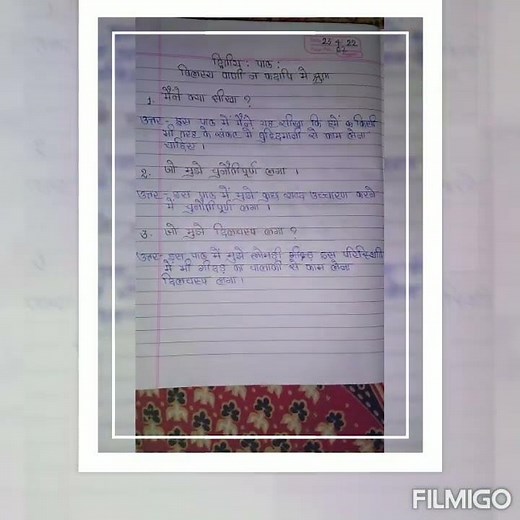 25 4 22
द्वितीय: पाठ:
बिलस्य वाणी न कदापि मे श्रुता
1. मैंने क्या सीखा ?
उत्तर - इस पाठ में मैंने यह सीखा कि हमें किसी
भी तरह के संकट में बुद्धिमानी से काम लेना
चाहिए ।
2. जो मुझे चुनौतिपूर्ण लगा ।
उत्तर - इस पाठ में मुझे कुछ शब्द उच्चारण करने
में चुनौतिपूर्ण लगा ।
3. जो मुझे दिलचस्प लगा ?
उत्तर - इस पाठ में मुझे लोमड़ी इस परिस्थिति
में भी गीदड़ के चालाकी से काम लेना
दिलचस्प लगा ।
FILMIGO